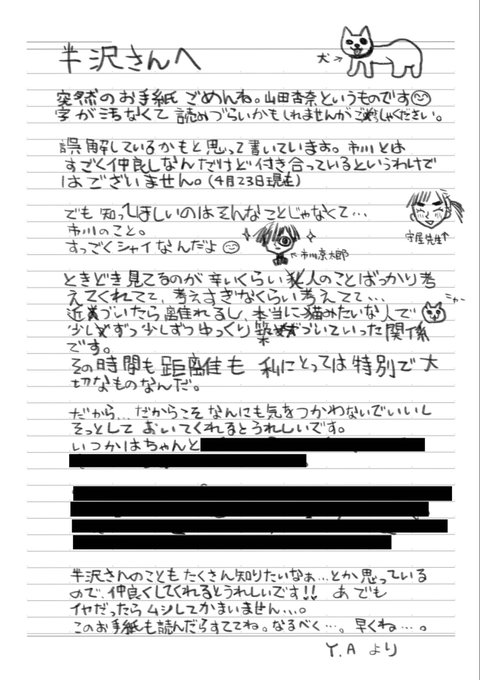 半沢さんへ
犬→
突然のお手紙ごめんね。山田杏奈というものです
字が汚なくて読みづらいかもしれませんがご容しゃください。
誤解しているかもと思って書いています。市川とは
すごく仲良しなんだけど付き合っているというわけで
はございません。(4月23日現在)
でも知ってほしいのはそんなことじゃなくて…
市川のこと。
すっごくシャイなんだよ
←市川京太郎
守屋先生↑
ときどき見てるのが辛いくらい人のことばっかり考
えてくれてて、考えすぎなくらい考えてて…
近づいたら離れるし、本当に猫みたいな人で
ミャー
少しずつ少しずつゆっくり築づいていった関係
です。
その時間も距離も私にとっては特別で大
切なものなんだ。
だから…だからこそなんにも気をつかわないでいいし
そっとしておいてくれるとうれしいです。
いつかはちゃんと
半沢さんのこともたくさん知りたいなぁ…とか思っている
ので、仲良くしてくれるとうれしいです!! あ でも
イヤだったらムシしてかまいません…。
このお手紙も読んだらすててね。なるべく…。早くね…。
Y.Aより